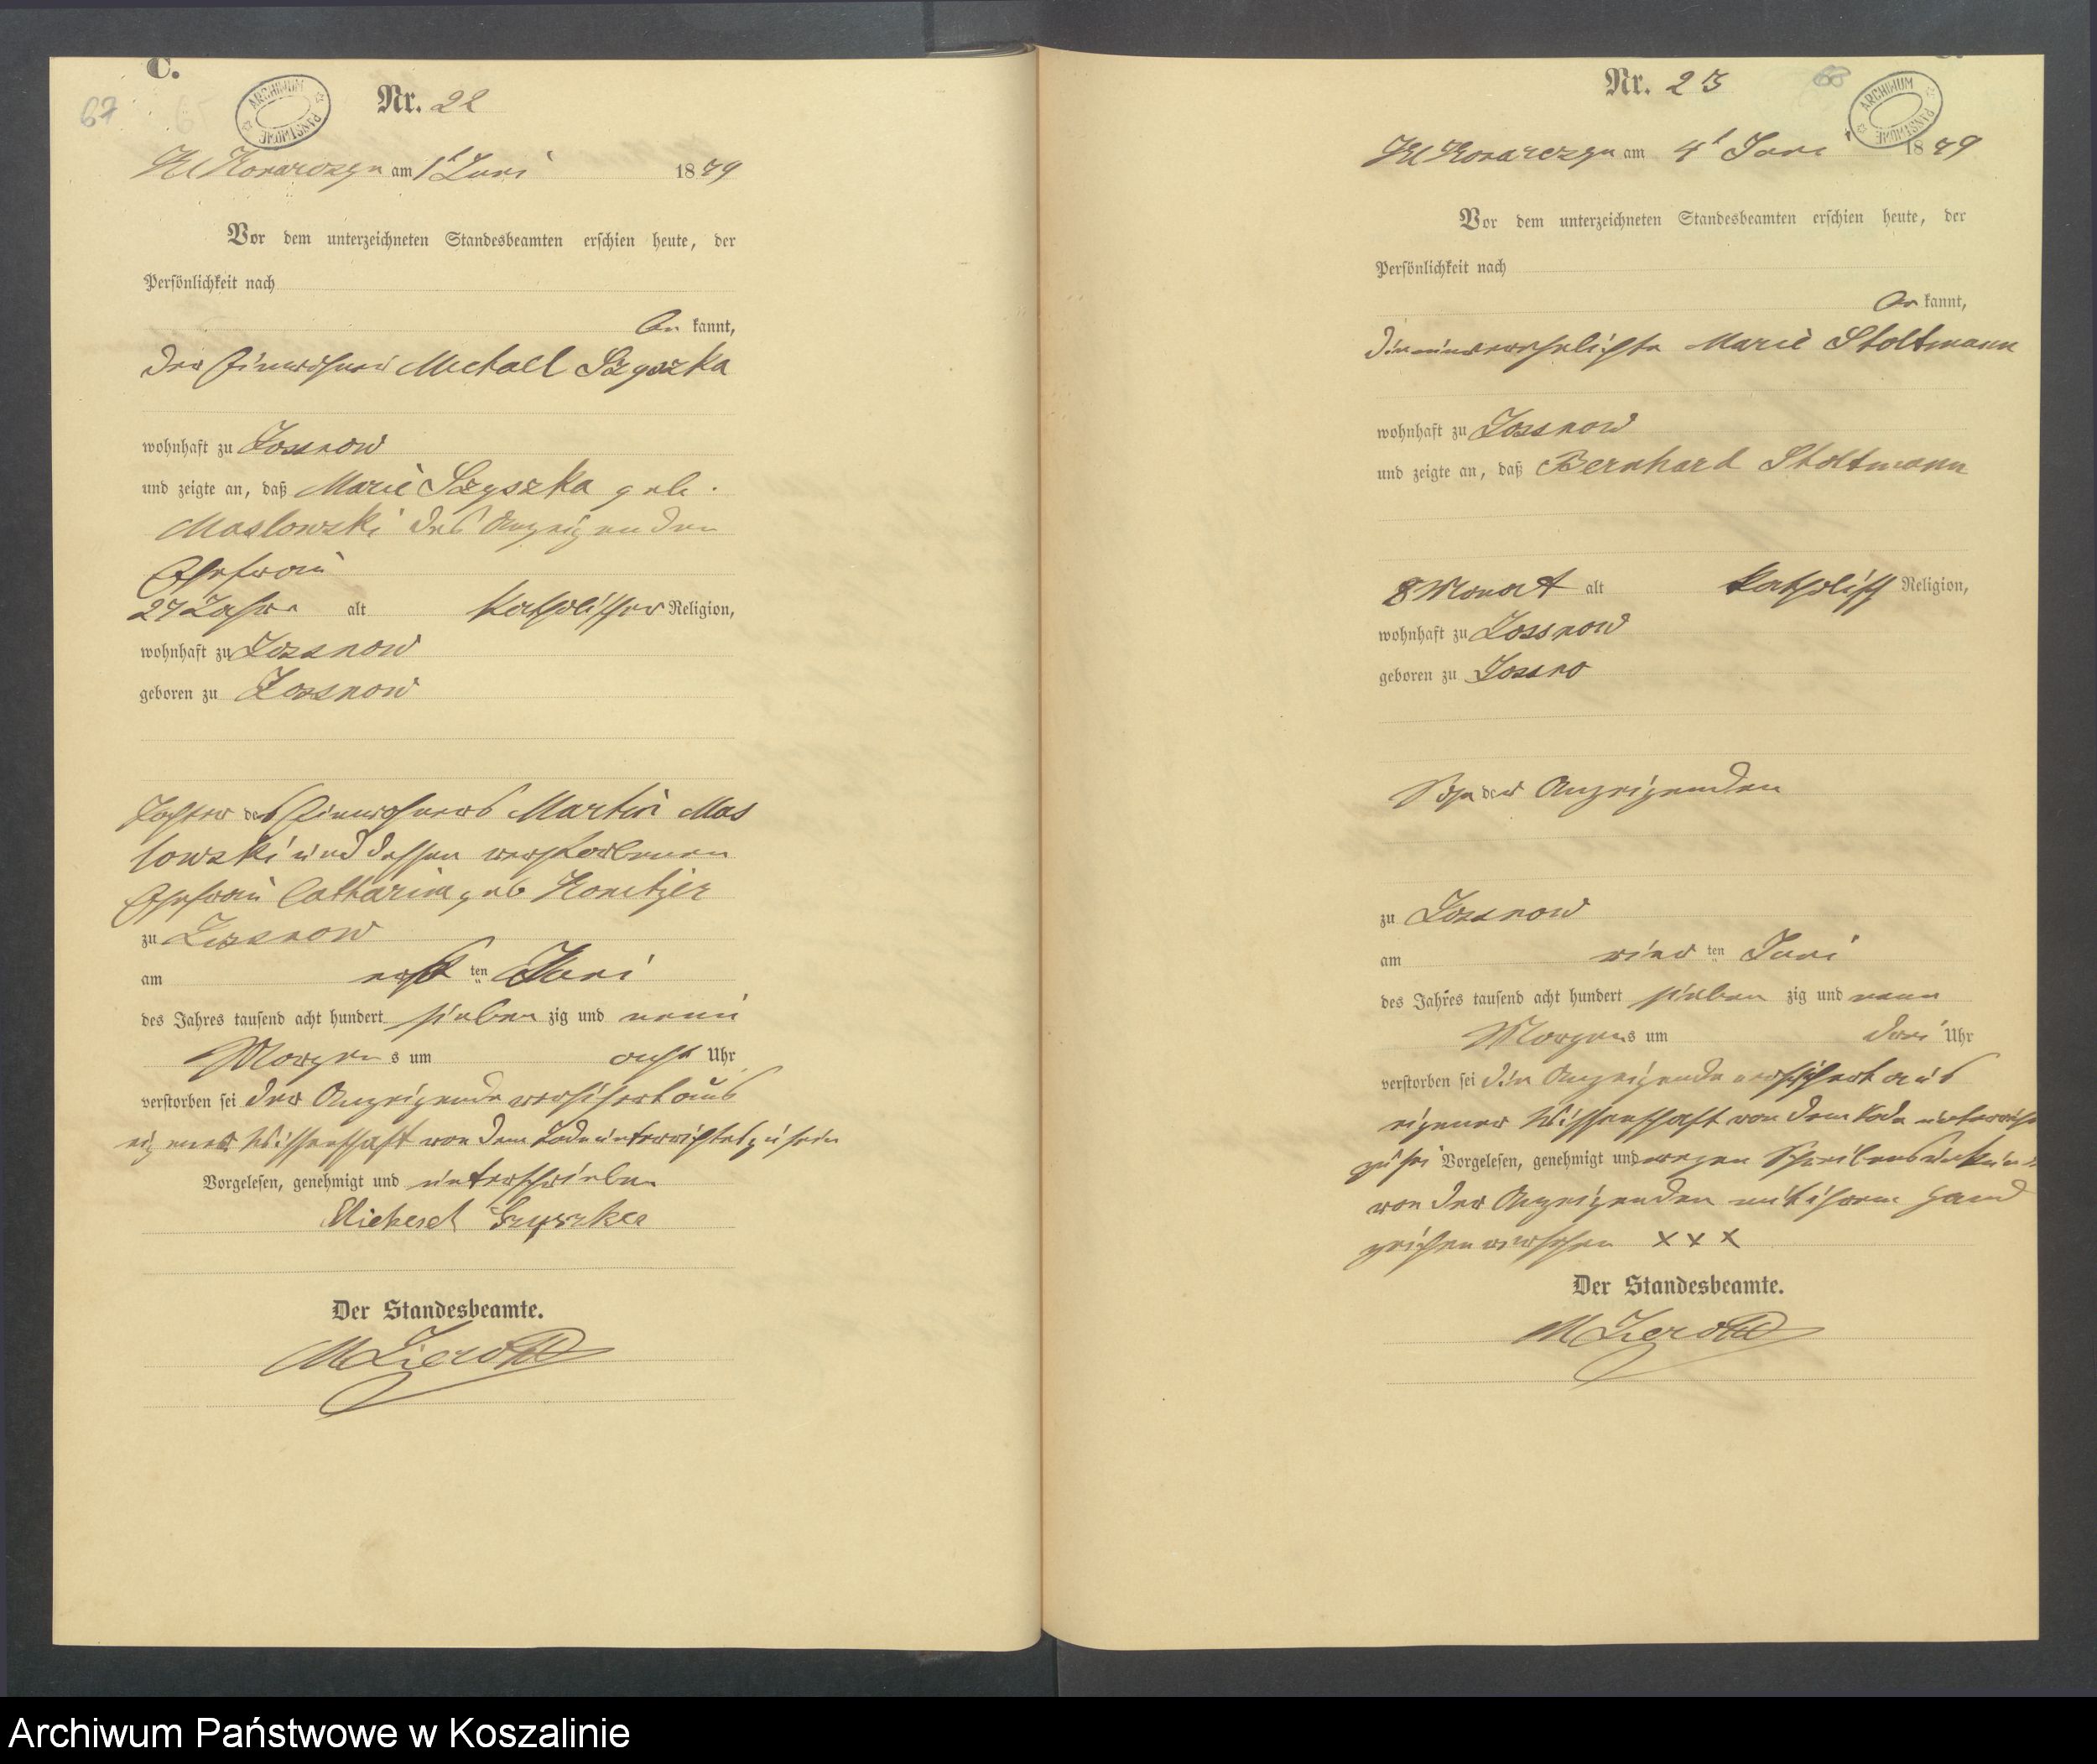 C.
67
ARCHIWUM PAŃSTWOWE
Nr. 22
Kl Konarczyn am 1t Juni 1879
Vor dem unterzeichneten Standesbeamten erschien heute, der
Persönlichkeit nach
be kannt,
der Einwohner Michael Szyszka
wohnhaft zu Zossnow
und zeigte an, daß Marie Szyszka geb.
Maslowski des Anzeigenden
Ehefrau
27 Jahre alt katholischer Religion,
wohnhaft zu Zossnow
geboren zu Zossnow
Tochter des Einwohners Martin Mas
lowski und dessen verstorbenen
Ehefrau Catharina geb
zu Zossnow
am erst ten Juni
des Jahres tausend acht hundert sieben zig und neun
Morgens um acht Uhr
verstorben sei der Anzeigende versichert aus
eigener Wissenschaft von dem Tode unterrichtet zu sein
Vorgelesen, genehmigt und unterschrieben
Michael Szyszka
Der Standesbeamte.
68
ARCHIWUM PAŃSTWOWE
Nr. 23
Kl Konarczyn am 4t Juni 1879
Vor dem unterzeichneten Standesbeamten erschien heute, der
Persönlichkeit nach
be kannt,
die unverehelichte Marie Stoltmann
wohnhaft zu Zossnow
und zeigte an, daß Bernhard Stoltmann
8 Monat alt katholisch Religion,
wohnhaft zu Zossnow
geboren zu Zossno
Sohn der Anzeigenden
zu Zossnow
am vier ten Juni
des Jahres tausend acht hundert sieben zig und neun
Morgens um drei Uhr
verstorben sei die Anzeigende versichert aus
eigener Wissenschaft von dem Tode
zu sei Vorgelesen, genehmigt und wegen
von der Anzeigenden mit ihrem Hand
zeichen versehen x x x
Der Standesbeamte.
Archiwum Państwowe w Koszalinie